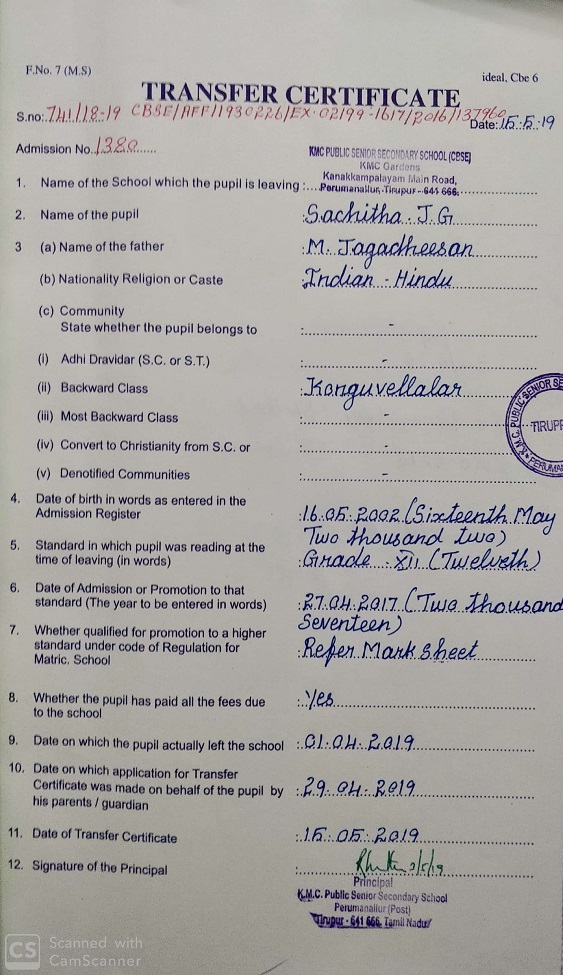 F.No. 7 (M.S)
ideal, Cbe 6
TRANSFER CERTIFICATE
S.no: 741/18-19 CBSE/AFF/1930226/EX-02199-1617/2016/137960
Date: 15.5.19
Admission No. 1380
KMC PUBLIC SENIOR SECONDARY SCHOOL (CBSE)
KMC Gardens
Kanakkampalayam Main Road,
1. Name of the School which the pupil is leaving : Perumanallur, Tirupur - 641 666.
2. Name of the pupil : Sachitha. J.G
3 (a) Name of the father : M. Jagadheesan
(b) Nationality Religion or Caste Indian - Hindu
(c) Community
State whether the pupil belongs to : -
(i) Adhi Dravidar (S.C. or S.T.) : -
(ii) Backward Class : Konguvellalar
(iii) Most Backward Class : -
(iv) Convert to Christianity from S.C. or : -
(v) Denotified Communities : -
K.M.C. PUBLIC SENIOR SE
TIRUPP
PERUMA
4. Date of birth in words as entered in the
Admission Register : 16.05.2002 (Sixteenth May
Two thousand two)
5. Standard in which pupil was reading at the
time of leaving (in words) : Grade - XII (Twelveth)
6. Date of Admission or Promotion to that
standard (The year to be entered in words) : 27.04.2017 (Two thousand
Seventeen)
7. Whether qualified for promotion to a higher
standard under code of Regulation for
Matric. School : Refer Mark sheet
8. Whether the pupil has paid all the fees due
to the school : Yes
9. Date on which the pupil actually left the school : 01.04.2019
10. Date on which application for Transfer
Certificate was made on behalf of the pupil by : 29.04.2019
his parents / guardian
11. Date of Transfer Certificate : 15.05.2019
12. Signature of the Principal :
Principal
K.M.C. Public Senior Secondary School
Perumanallur (Post)
Tirupur - 641 666. Tamil Nadu
CS Scanned with
CamScanner